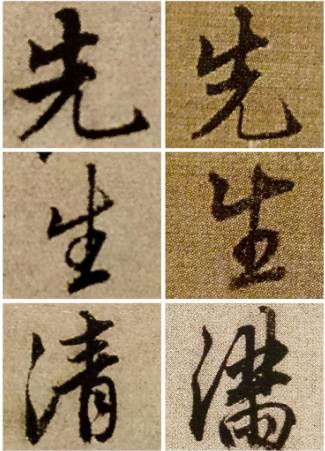 先先
生生
清滿